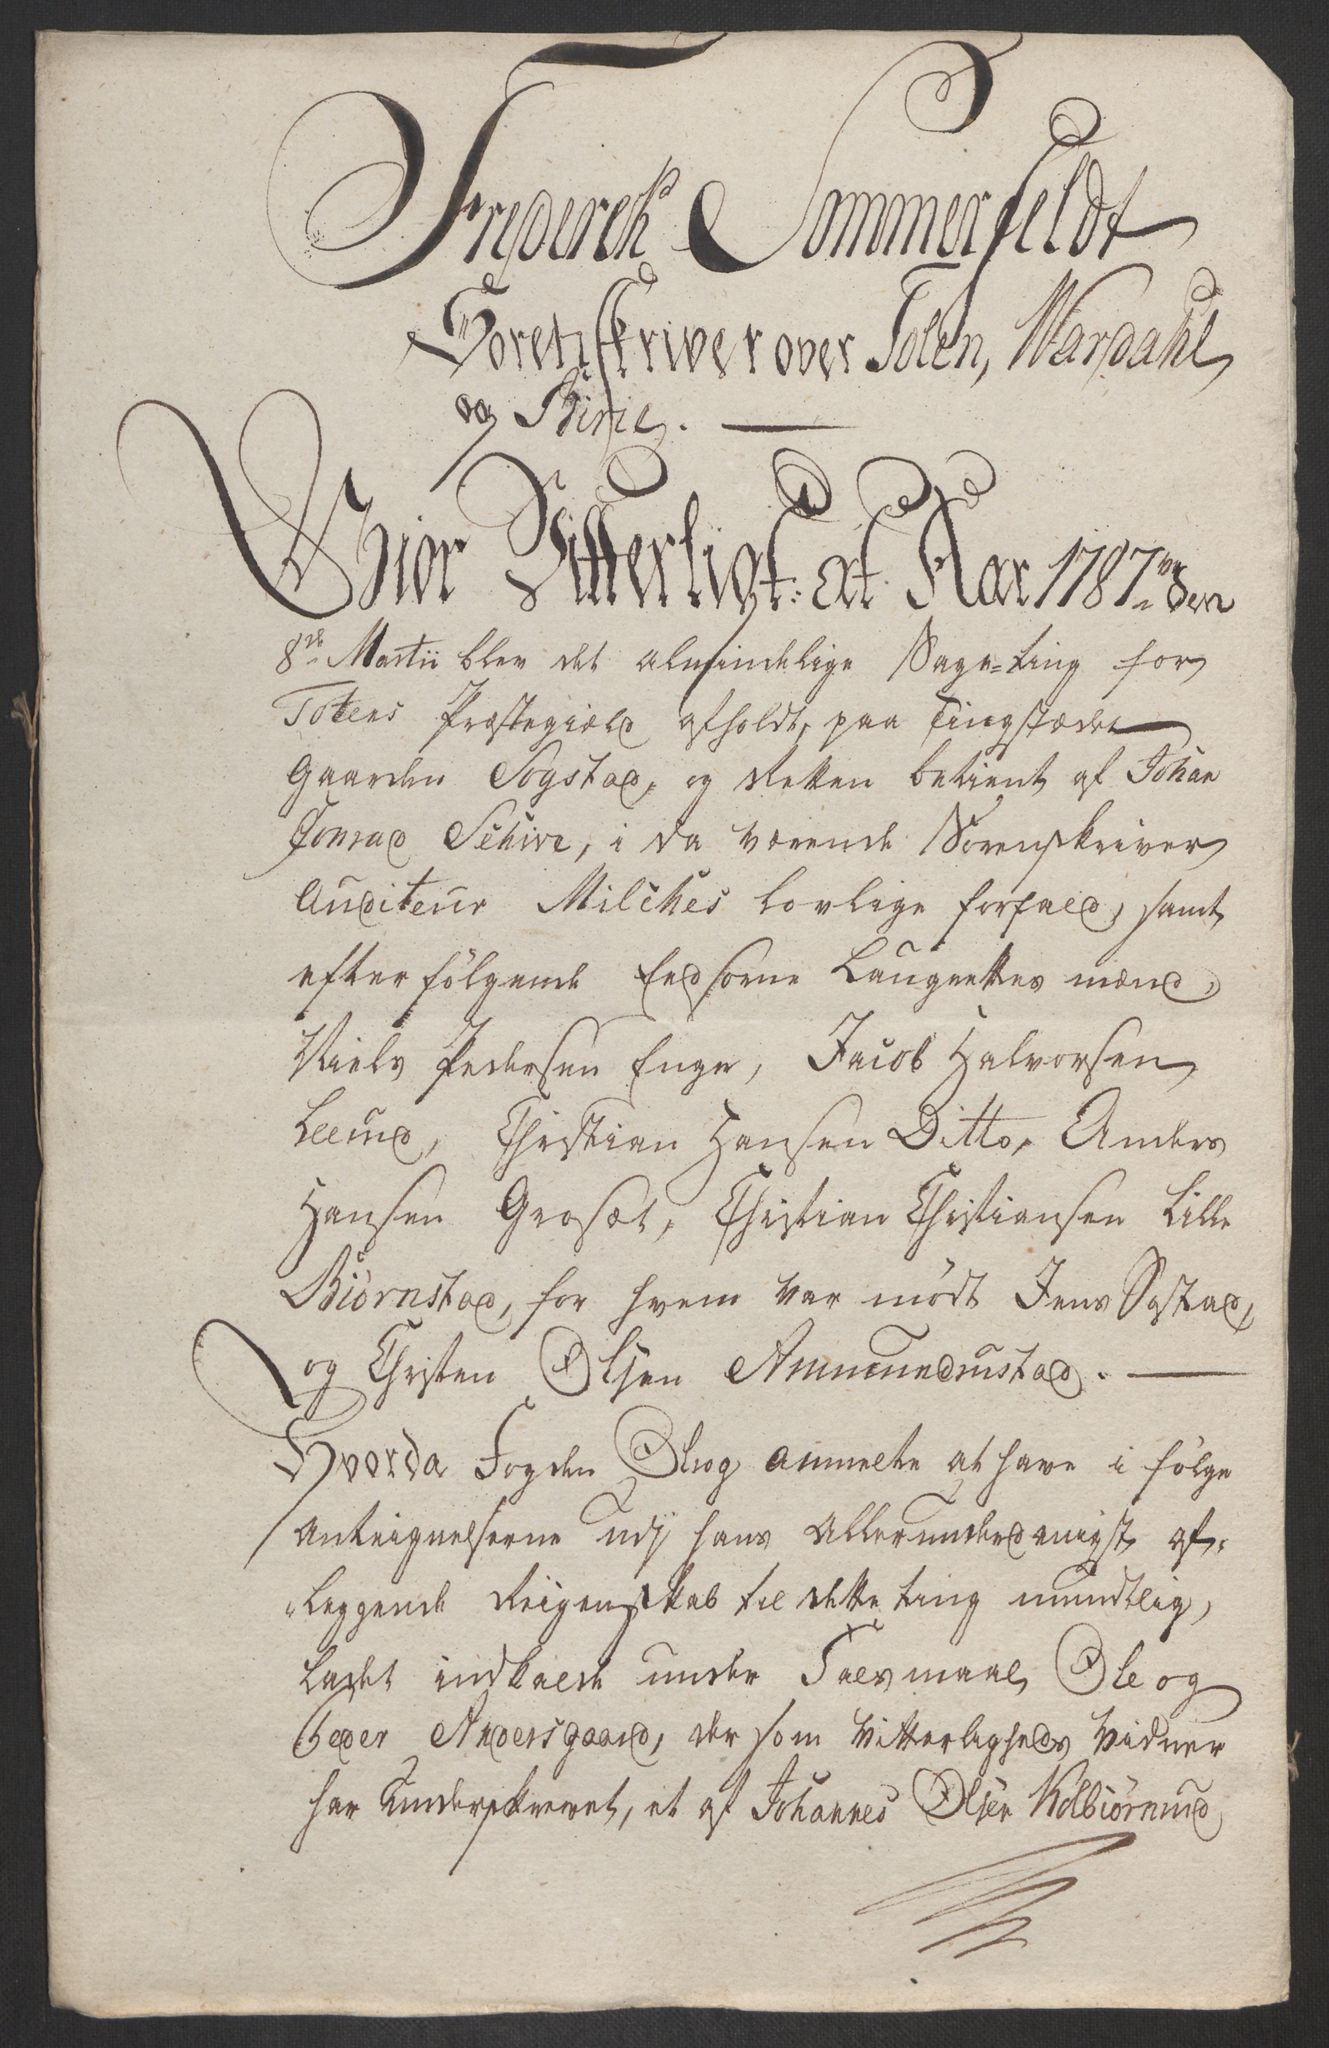 Frederch Sommerfeldt
Sorenskriver over Toten, Wardahl
og Birie.
Giør Vitterligt: at Aar 1787 den
8de Martii blev det almindelige Sage-ting for
Totens Præstegield afholdt, paa Tingstædet
Gaarden Sogstad, og Retten betient af Johan
Conrad Schive, i da værende Sorenskriver
Auditeur Milches lovlige forfald, samt
efterfølgende Eedsorne Laugrettes mænd,
Niels Pedersen Enge, Jacob Halvorsen
Leerud, Christian Hansen Ditto, Anders
Hansen Grosæt, Christian Christiansen Lille
Biørnstad, for hvem var mødt Jens Sostad,
og Christen Olsen Ammundrustad.
Hvorda Fogden anmelte at have i følge
Anteignelserne udj hans Allerunderdanigst af-
leggende Reigenskab til dette ting mundtlig,
ladet indkalde under Falsmaal Ole og
Peder Andersgaard, der som Vitterligheds Vidner
har underskrevet, et af Johannes Olsen Kolbiørnrud